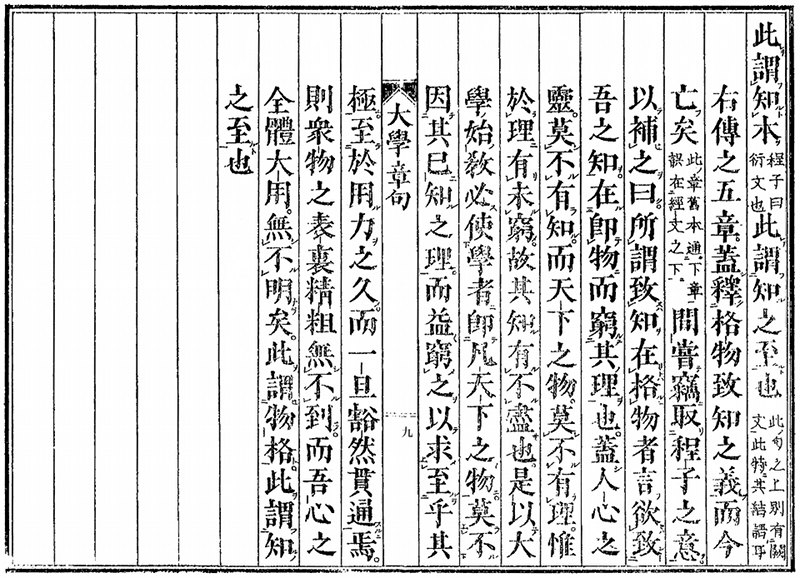 此謂知本程子曰衍文也此謂知之至也此句之上別有闕文此特其結語耳
右傳之五章蓋釋格物致知之義而今
亡矣此章舊本通下章誤在經文之下間嘗竊取程子之意
以補之曰所謂致知在格物者言欲致
吾之知在卽物而窮其理也蓋人心之
靈莫不有知而天下之物莫不有理惟
於理有未窮故其知有不盡也是以大
學始敎必使學者卽凡天下之物莫不
因其已知之理而益窮之以求至乎其
大學章句 九
極至於用力之久而一旦豁然貫通焉
則衆物之表裏精粗無不到而吾心之
全體大用無不明矣此謂物格此謂知
之至也